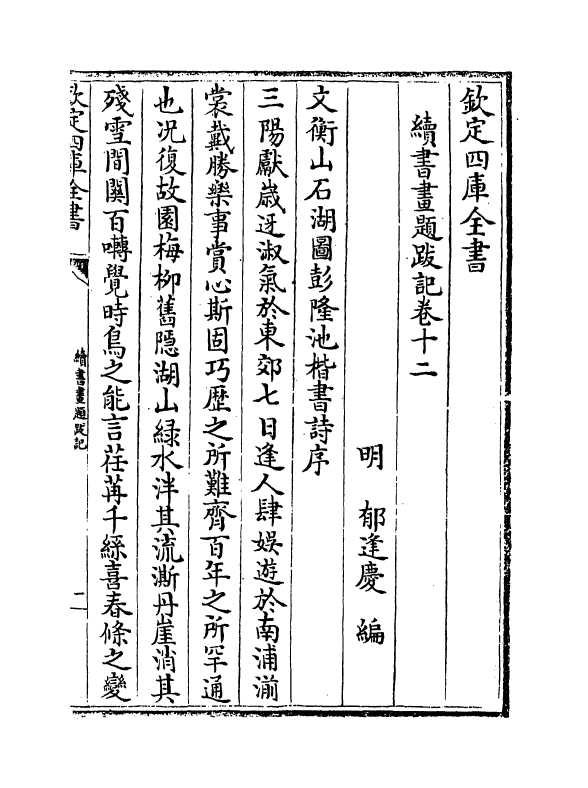 欽定四庫全書
續書畫題跋記卷十二
明 郁逢慶 編
文衡山石湖圖彭隆池楷書詩序
三陽獻歳迓淑氣於東郊七日逢人肆娛遊於南浦湔
裳戴勝樂事賞心斯固巧歴之所難齊百年之所罕通
也况復故園梅柳舊隱湖山緑水泮其流澌丹崖消其
殘雪間闗百囀覺時鳥之能言荏苒千綵喜春條之變
欽定四庫全書
續書畫題跋記